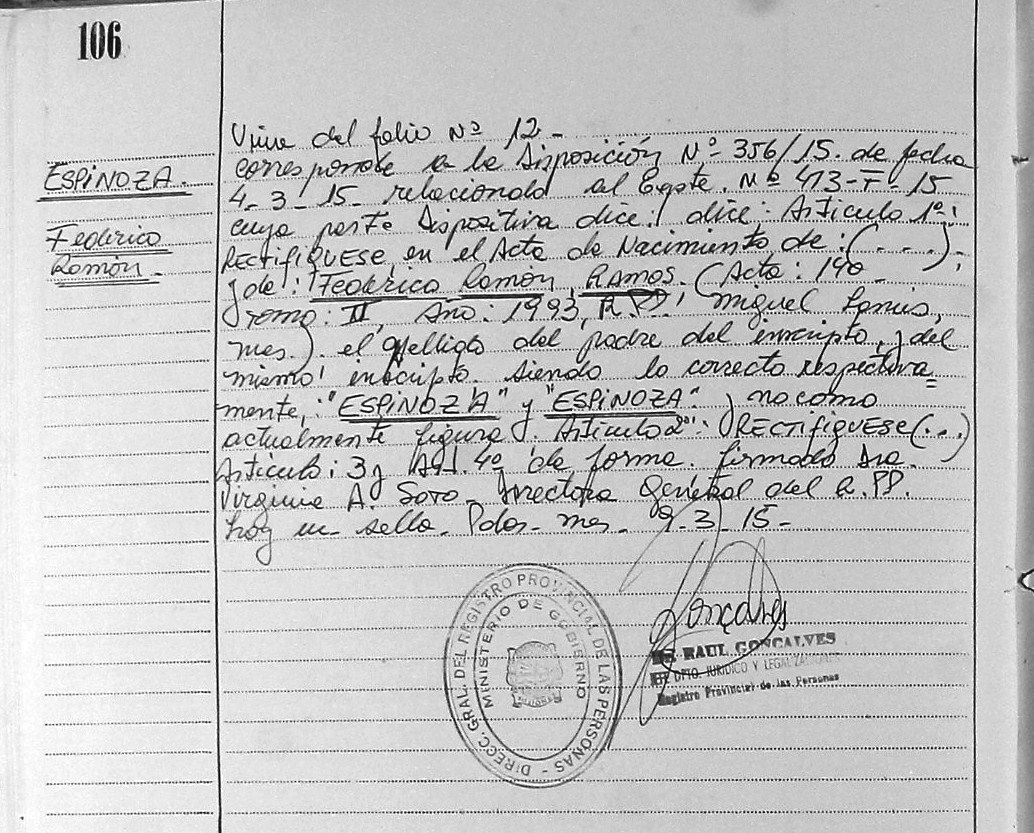 106
ESPINOZA.
Federico
Ramón.
Viene del folio Nº 12.-
corresponde a la Disposición Nº 356/15. de fecha
4-3-15- relacionada al Expte. Nº 413-F-15
cuya parte Dispositiva dice: dice: Articulo 1º:
RECTIFIQUESE en el Acta de Nacimiento de: (...);
y de: Federico Ramón RAMOS. (Acta: 190
Tomo: II, Año: 1993, R.P.: Miguel Lanus,
mes.). el apellido del padre del inscripto, y del
mismo inscripto. siendo lo correcto respectiva=
mente, "ESPINOZA" y "ESPINOZA" y no como
actualmente figura. Articulo 2º: RECTIFIQUESE (...)
Articulo: 3 y Art. 4º de forma. firmado Dra.
Virginia A. Soto - Directora General del R.PP.
hoy un sello. Pdas-mes- 9-3-15-
DIRECC. GRAL. DEL REGISTRO PROVINCIAL DE LAS PERSONAS -
MINISTERIO DE GOBIERNO
MISIONES
Gonçalves
DR. RAUL GONCALVES
DPTO. JURIDICO Y LEGALIZACIONES
Registro Provincial de las Personas